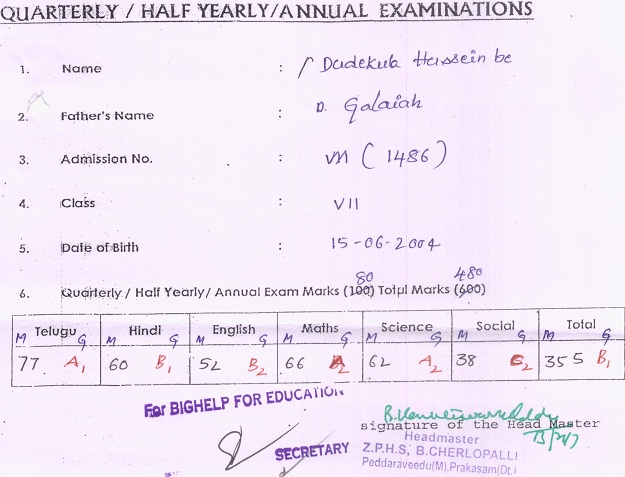 QUARTERLY / HALF YEARLY/ANNUAL EXAMINATIONS
1. Name : Dudekula Hussein be
2. Father's Name : D. Galaiah
3. Admission No. : VM ( 1486 )
4. Class : VII
5. Date of Birth : 15-06-2004
80 480
6. Quarterly / Half Yearly/ Annual Exam Marks (100) Total Marks (600)
Telugu Hindi English Maths Science Social Total
M G M G M G M G M G M G M G
77 A1 60 B1 52 B2 66 A2 62 A2 38 C2 355 B1
For BIGHELP FOR EDUCATION
SECRETARY
signature of the Head Master
Headmaster
Z.P.H.S, B.CHERLOPALLI
Peddaraveedu(M),Prakasam(Dt.)